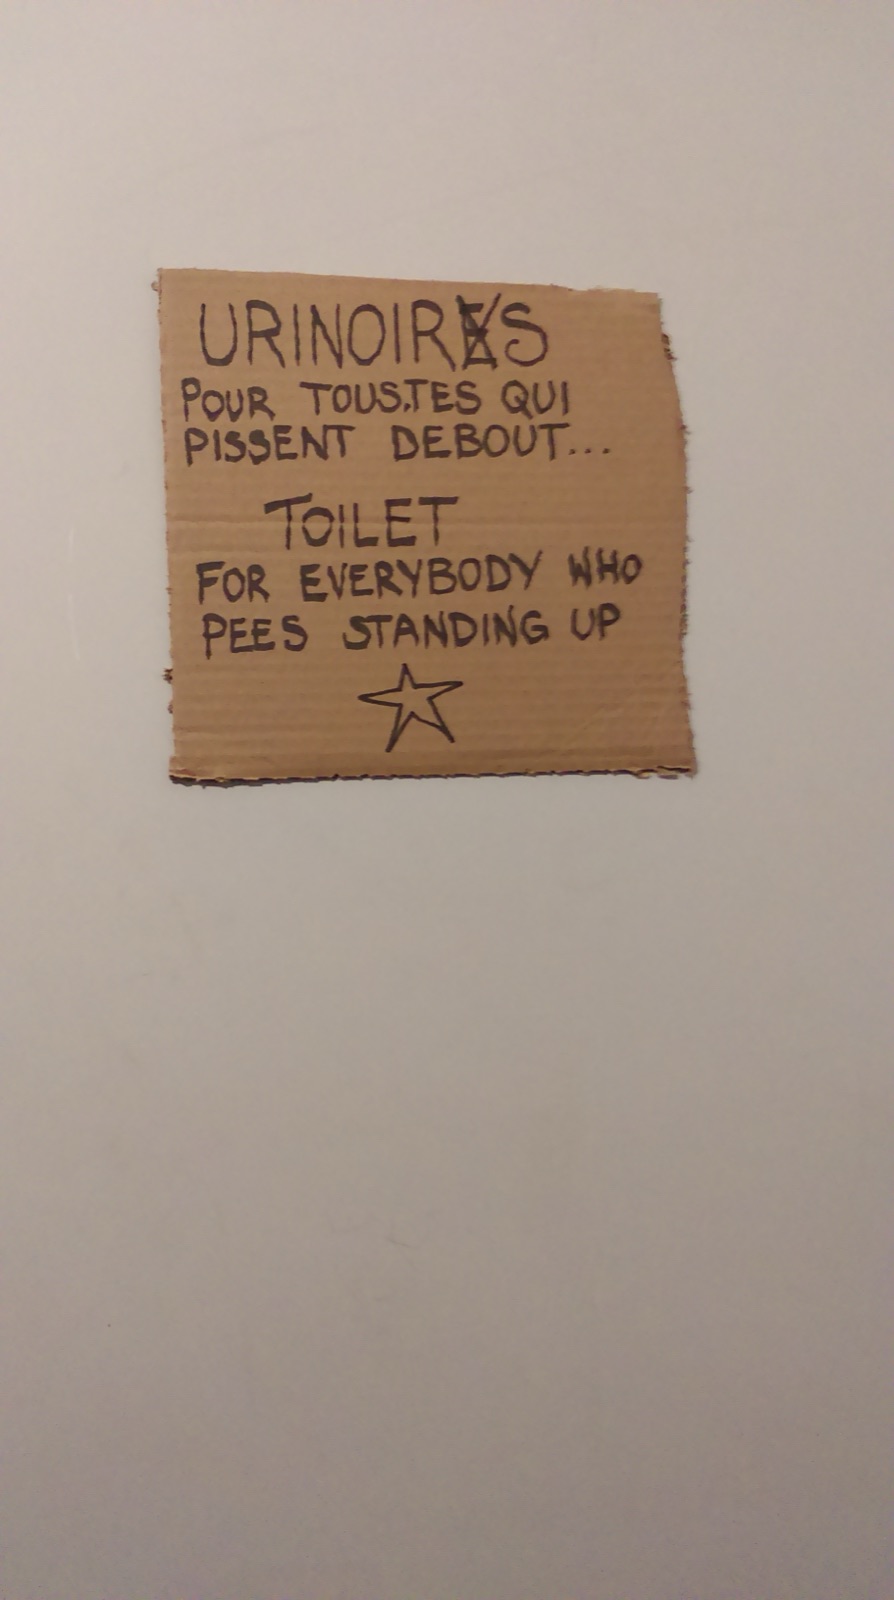 URINOIRS
POUR TOUS.TES QUI
PISSENT DEBOUT...
TOILET
FOR EVERYBODY WHO
PEES STANDING UP